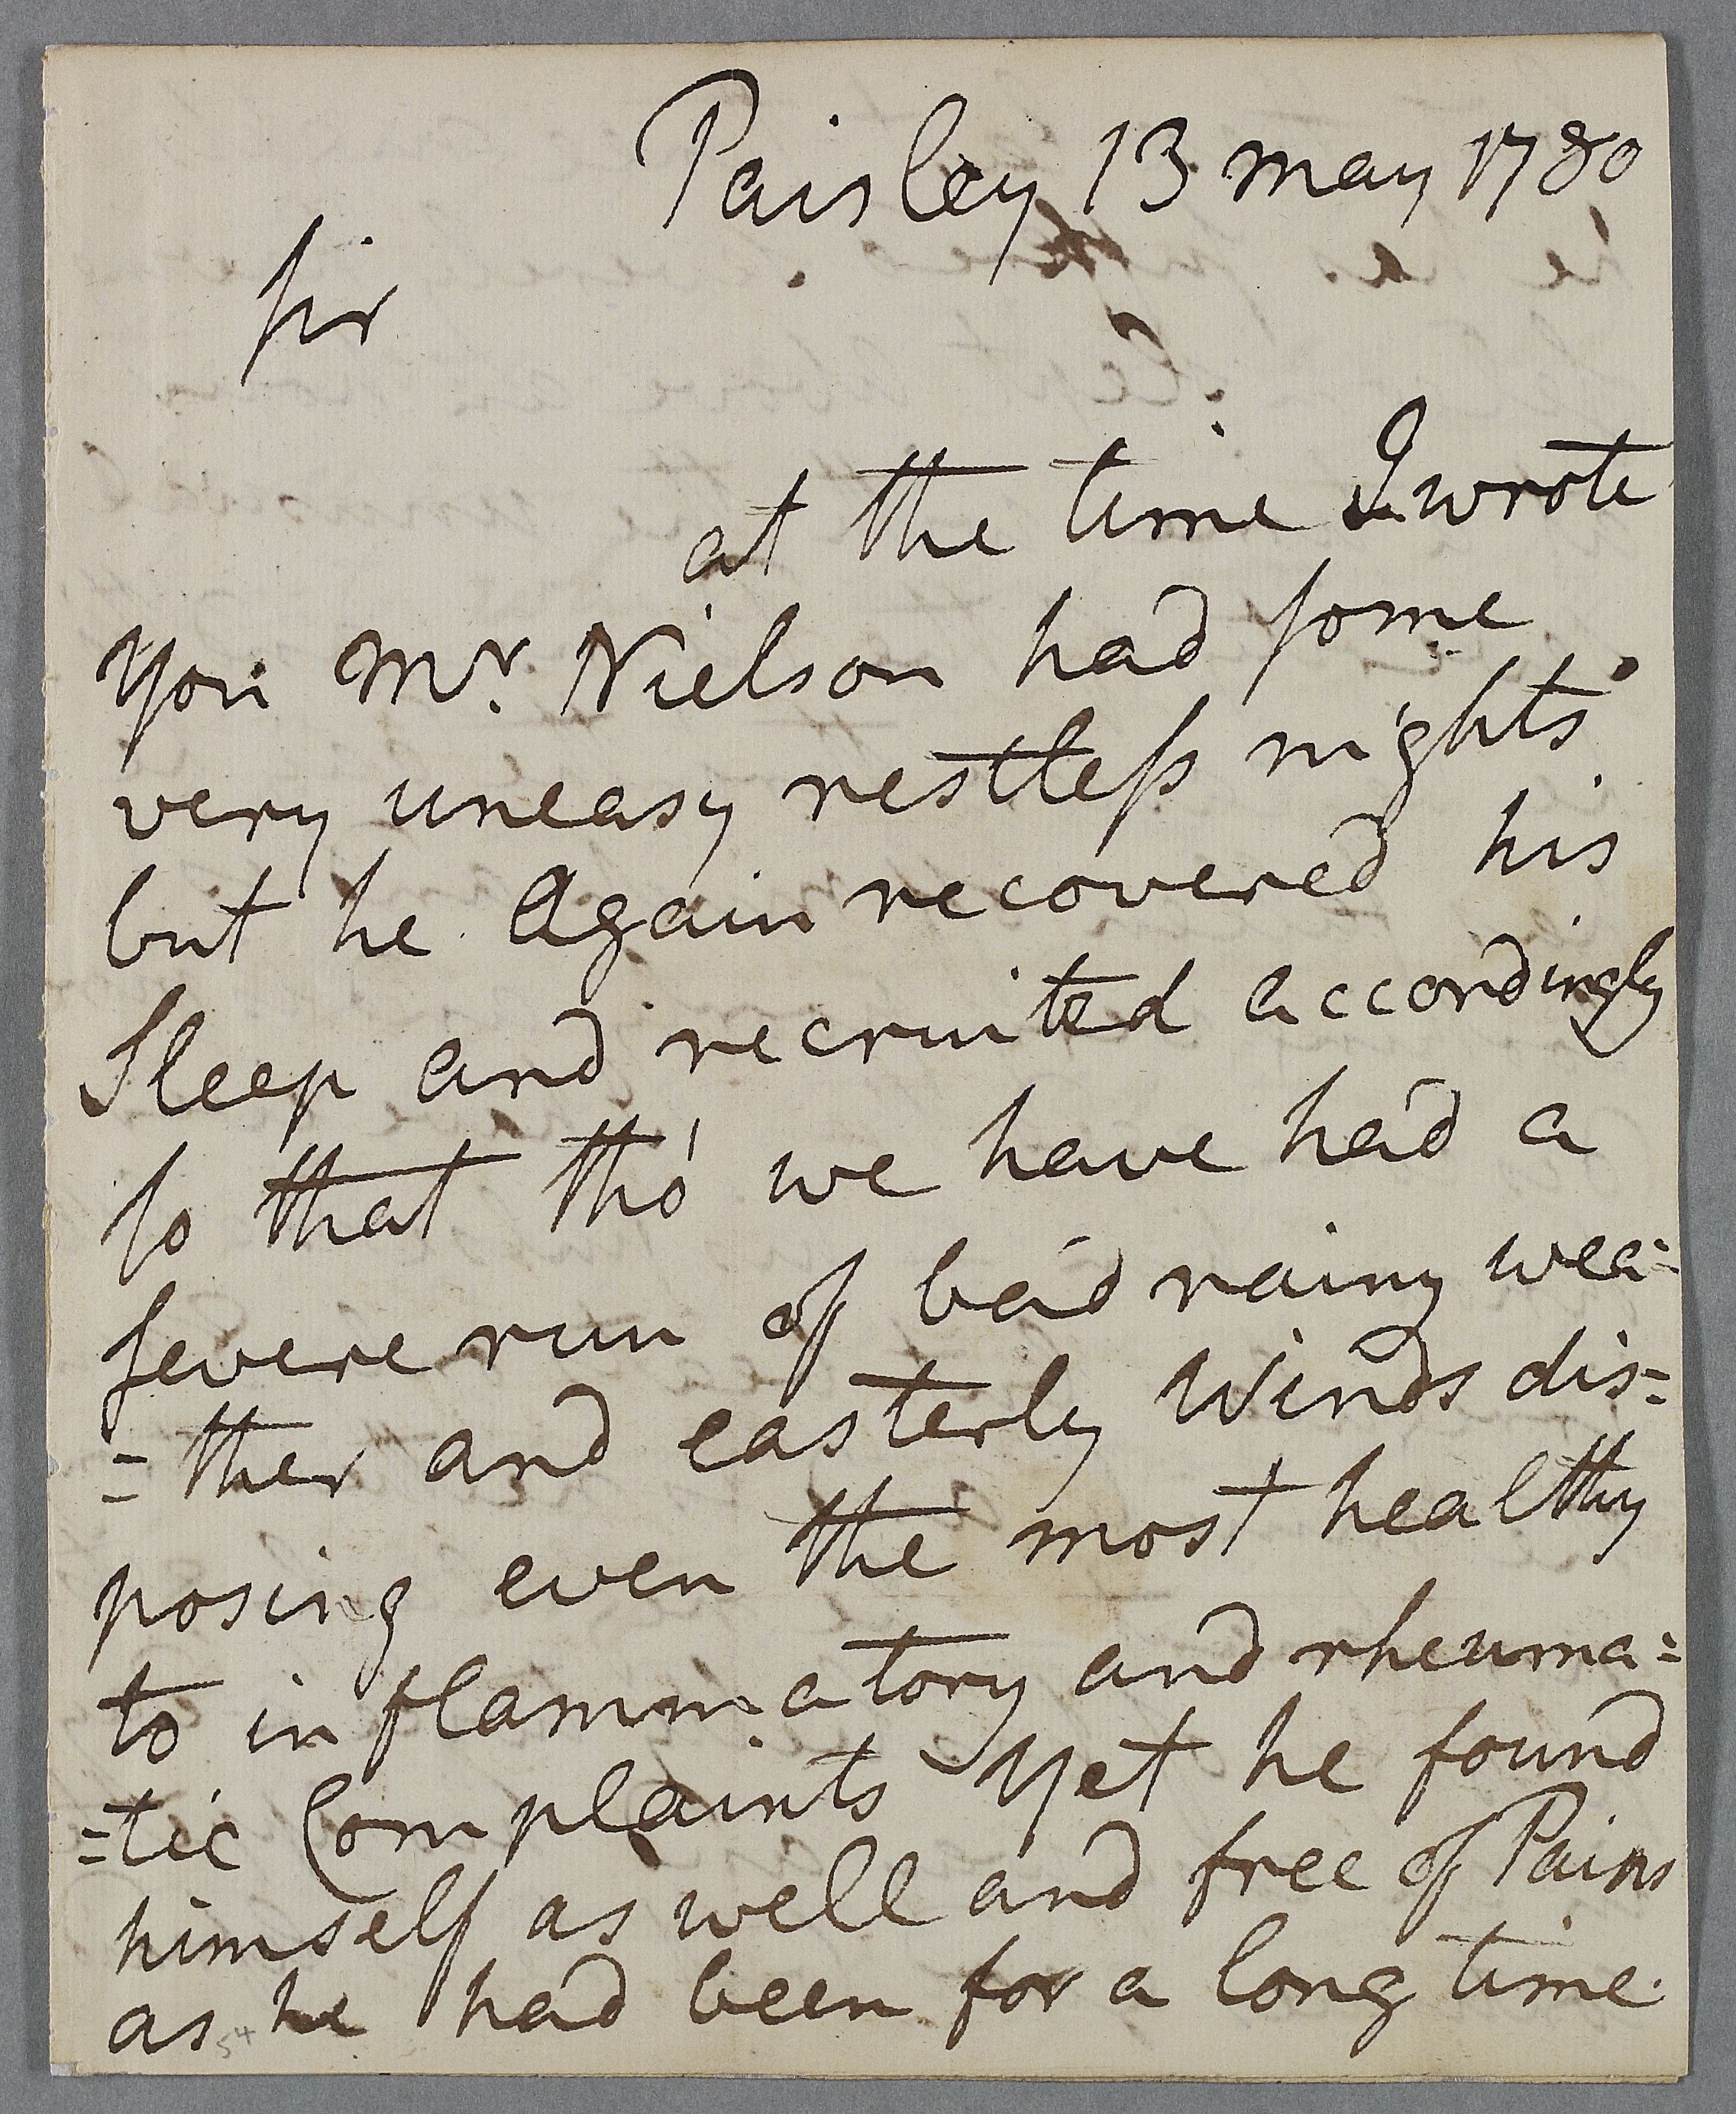 Paisley 13 may 1780
Sir
at the time I wrote
you Mr. Nielson had some
very uneasy restless nights
but he Again recovered his
Sleep and recruited accordingly
so that tho' we have had a
severe run of bad rainy wea=
=ther and easterly Winds dis=
posing even the most healthy
to inflammatory and rheuma=
=tic Complaints yet he found
himself as well and free of Pains
as he had been for a long time.
54